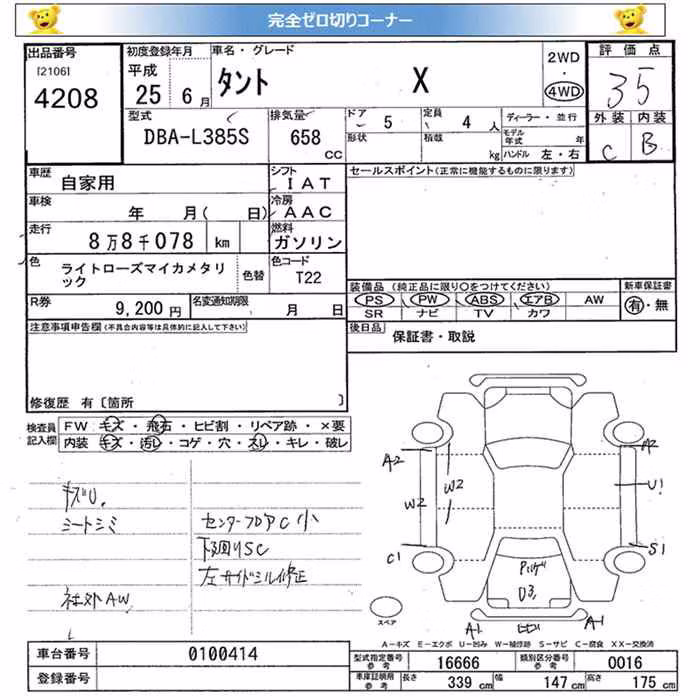 完全ゼロ切りコーナー
出品番号
[2106]
4208
初度登録年月
平成
25 6月
車名・グレード
タント X
2WD
・
4WD
評価点
35
外装 内装
C B
型式
DBA-L385S
排気量
658
CC
ドア
5
形状
定員
4 人
積載
kg
ディーラー・並行
モデル年式 年
ハンドル 左・右
車歴
自家用
シフト
IAT
車検
年 月( 日)
冷房
AAC
走行
8万8千078 km
燃料
ガソリン
色
ライトローズマイカメタリック
色替
色コード
T22
R券
9,200円
名変通知期限
月 日
セールスポイント(正常に機能するものに限ります)
装備品 (純正品に限り○をつけてください)
PS PW ABS エアB AW
SR ナビ TV カワ
新車保証書
有・無
後日品
保証書・取説
注意事項申告欄(不具合内容等は具体的に記入して下さい)
修復歴 有〔箇所 〕
検査員記入欄
FW キズ・飛石・ヒビ割・リペア跡・×要
内装 キズ・汚レ・コゲ・穴・スレ・キレ・破レ
キズU.
シートシミ
社外AW
センターフロアC小
下廻りSC
左サイドシル修正
A2
W2
C1
W2
A2
U1
S1
U3
A1
A1
スペア
A-キズ E-エクボ U-凹み W-補修跡 S-サビ C-腐食 XX-交換済
車台番号
0100414
登録番号
型式指定番号 参考
16666
類別区分番号 参考
0016
車庫証明 参考
長さ 339 cm
幅 147 cm
高さ 175 cm